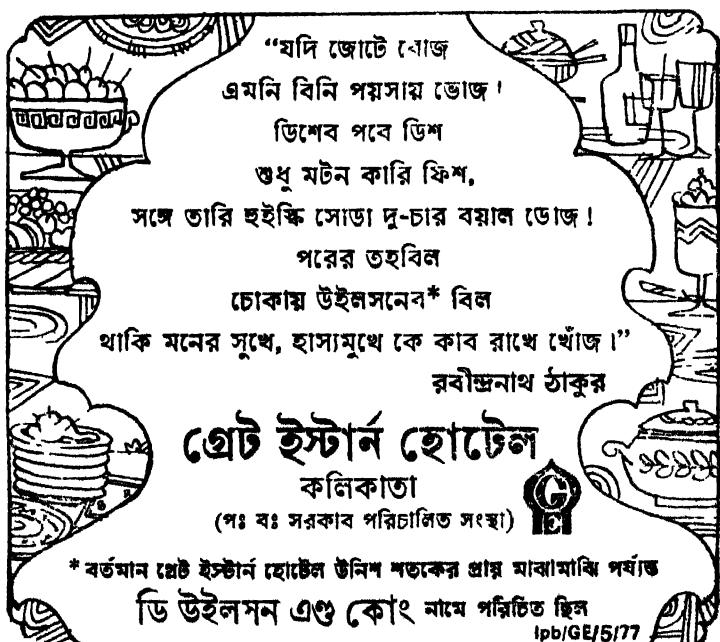 “যদি জোটে রোজ
এমনি বিনি পয়সায় ভোজ!
ডিশেব পবে ডিশ
শুধু মটন কারি ফিশ,
সঙ্গে তারি হুইস্কি সোডা দু-চার বয়াল ডোজ!
পরের তহবিল
চোকায় উইলসনের* বিল
থাকি মনের সুখে, হাস্যমুখে কে কাব রাখে খোঁজ।”
রবীন্দ্রনাথ ঠাকুর
গ্রেট ইস্টার্ন হোটেল
কলিকাতা
(পঃ বঃ সরকাব পরিচালিত সংস্থা)
GE
* বর্তমান গ্রেট ইস্টার্ন হোটেল উনিশ শতকের প্রায় মাঝামাঝি পর্যন্ত
ডি উইলসন এণ্ড কোং নামে পরিচিত ছিল
ipb/GE/5/77